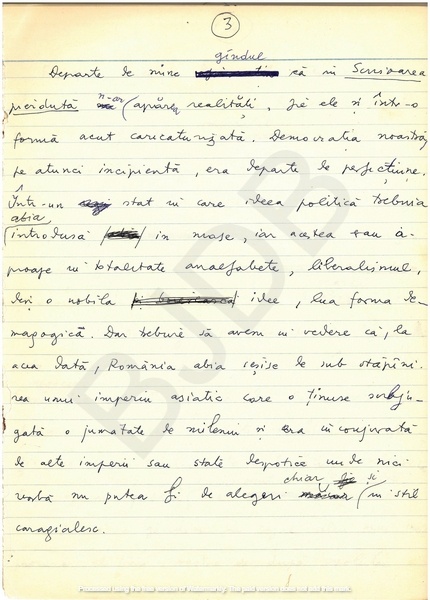 3
gîndul
Departe de mine că în Scrisoarea
n-ar
pierdută apărea realități, fie ele și într-o
formă acut caricaturizată. Democrația noastră,
pe atunci incipientă, era departe de perfecțiune.
Într-un stat în care ideea politică trebuia
abia
introdusă în mase, iar acestea erau a-
proape în totalitate analfabete, liberalismul,
deși o nobilă idee, lua forma de-
magogică. Dar trebuie să avem în vedere că, la
acea dată, România abia ieșise de sub stăpîni-
rea unui imperiu asiatic care o ținuse subju-
gată o jumătate de mileniu și era înconjurată
de alte imperii sau state despotice unde nici
chiar și
vorbă nu putea fi de alegeri în stil
caragialesc.
BJDB